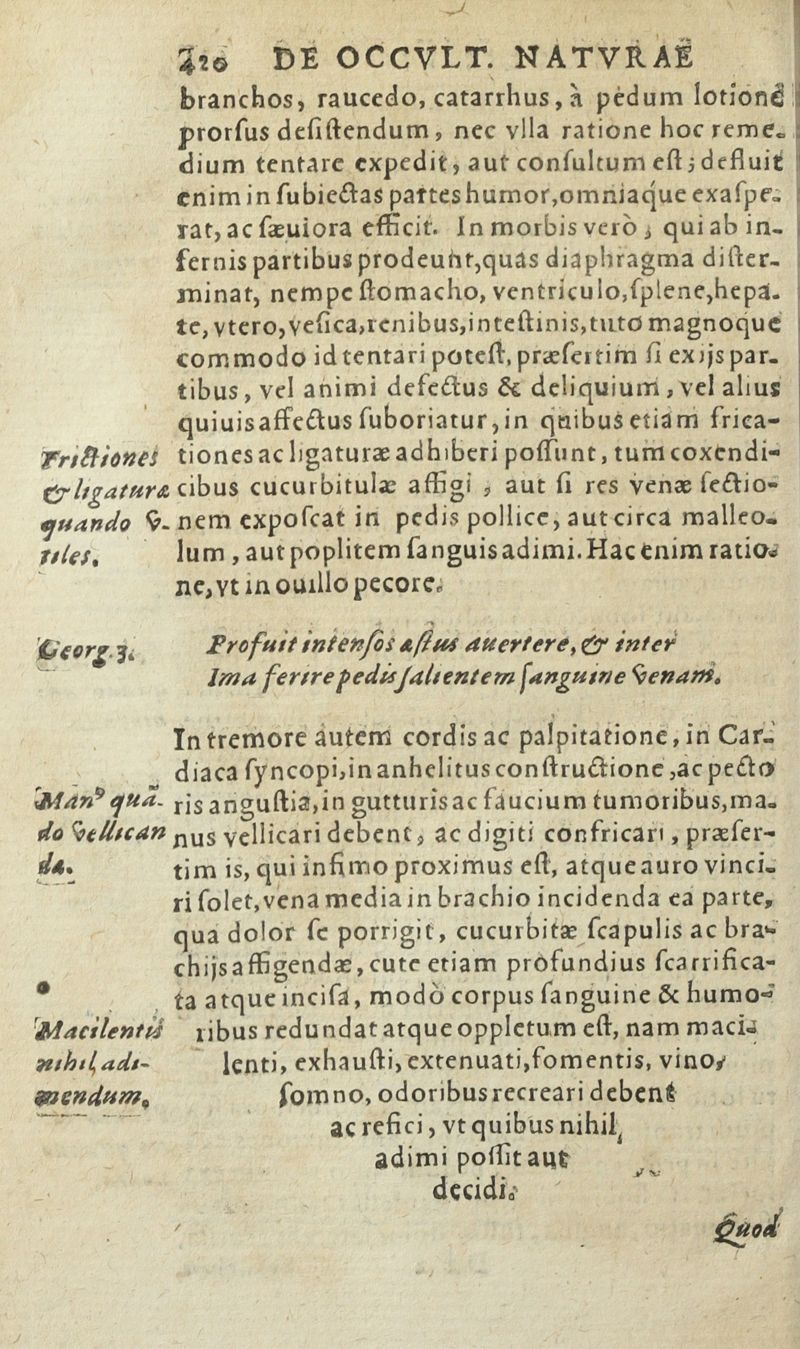 320 DE OCCVLT. NATVRAE
branchos, raucedo, catarrhus, à pedum lotione
prorſus deſiſtendum, nec vlla ratione hoc reme-
dium tentare expedit, aut conſultum eſt; defluit
enim in ſubiectas partes humor, omniaque exaſpe-
rat, ac ſæuiora efficit. In morbis verò, qui ab in-
fernis partibus prodeunt, quas diaphragma diſter-
minat, nempe ſtomacho, ventriculo, ſplene, hepa-
te, vtero, veſica, renibus, inteſtinis, tuto magnoque
commodo id tentari poteſt, præſertim ſi ex ijs par-
tibus, vel animi defectus & deliquium, vel alius
quiuis affectus ſuboriatur, in quibus etiam frica-
Frictiones tiones ac ligaturæ adhiberi poſſunt, tum coxendi-
& ligaturæ cibus cucurbitulæ affigi, aut ſi res venæ ſectio-
quando v- nem expoſcat in pedis pollice, aut circa malleo-
tiles. lum, aut poplitem ſanguis adimi. Hac enim ratio-
ne, vt in ouillo pecore.
Georg. 3. Profuit intenſos æſtus auertere, & inter
Ima ferire pedis ſalientem ſanguine venam.
In tremore autem cordis ac palpitatione, in Car-
diaca ſyncopi, in anhelitus conſtructione, ac pecto
Manꝰ quā- ris anguſtia, in gutturis ac faucium tumoribus, ma-
do vellican nus vellicari debent, ac digiti confricari, præſer-
da. tim is, qui infimo proximus eſt, atque auro vinci-
ri ſolet, vena media in brachio incidenda ea parte,
qua dolor ſe porrigit, cucurbitæ ſcapulis ac bra-
chijs affigendæ, cute etiam profundius ſcarrifica-
ta atque inciſa, modò corpus ſanguine & humo-
Macilentis ribus redundat atque oppletum eſt, nam maci-
nihil adi- lenti, exhauſti, extenuati, fomentis, vino,
mendum. ſomno, odoribus recreari debent
ac refici, vt quibus nihil
adimi poſſit aut
decidi.
Quod